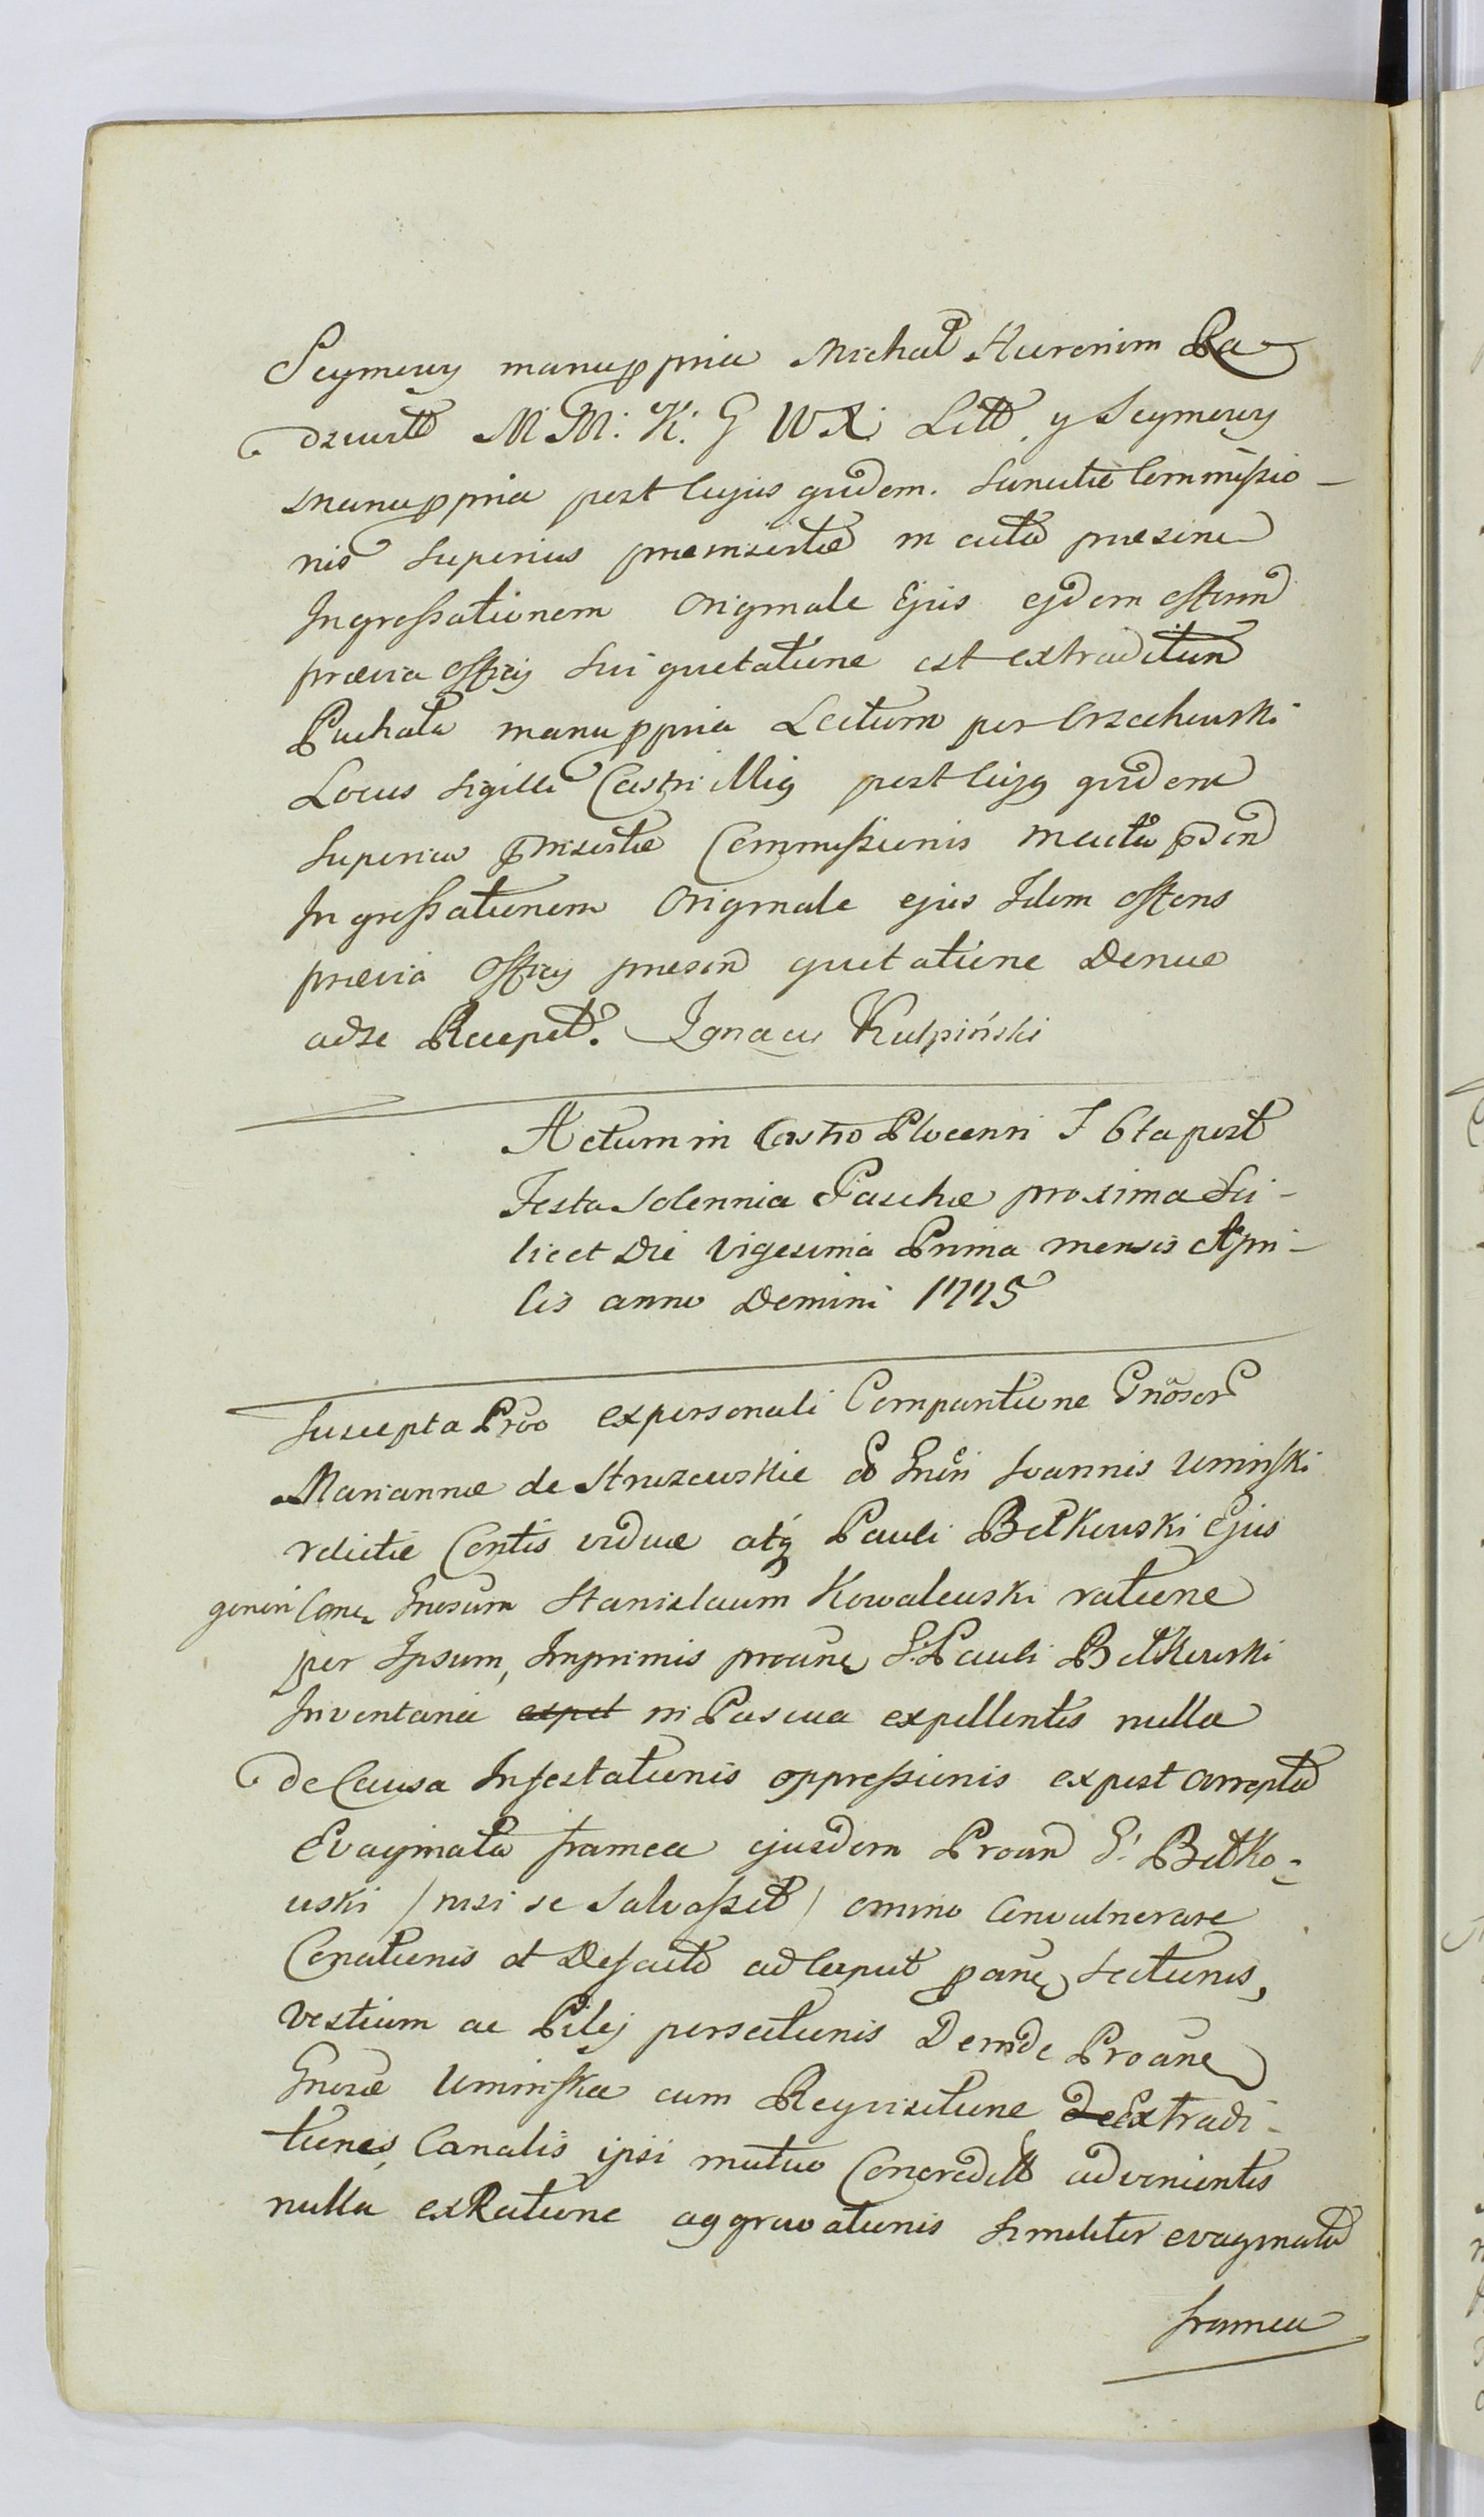 Seymowy manu ppria Michał Hieronim Ra-
dziwiłł M. M. K. G W X Litt. y Seymowy
manu ppria post cujus quidem. Senatus Commissio-
nis superius praeinsertae in acta praesen
Ingrossationem Originale Ejus ejdem offerenti
praevia Officij sui quietatione est extraditum
Puchała manu ppria Lectum per Orzechowski
Locus sigilli Castri Mlig post cujg quidem
superius pinsertae Commissionis in acta pdsen
Ingrossationem Originale ejus Idem offerens
praevia Officij praesen quietatione Denuo
ad se Recepit. Ignacy Kulpiński
Actum in Castro Plocensi F 6ta post
Festa Solennia Paschae proxima sci-
licet Die Vigesima Prima mensis Apri-
lis anno Domini 1775
Suscepta Prõo ex personali Comparitione Gnõsor
Mariannae de Struzewskie Gnsi Joannis Uminski
relictae Contis viduae atq Pauli Bełkowski Ejus
generi Cone Gnosum Stanislaum Kowalewski ratione
per Ipsum, Imprimis proane G. Pauli Bełkowski
Inventaria expel in Pascua expellentis nulla
de Causa Infestationis oppressionis ex post arrepta
Evaginata framea ejusdem Proan G. Bełko-
wski / nisi se salvasset / omnino Convulnerare
Conationis et De facto ad Caput pane sectionis,
vestium ac Pilej persectionis Deinde Proane
Gnosae Uminska cum Reqvisitione de Extradi-
tiones, Canalis ipsi mutuo Concrediti advenientis
nulla ex Ratione aggravationis similiter evaginata
framea